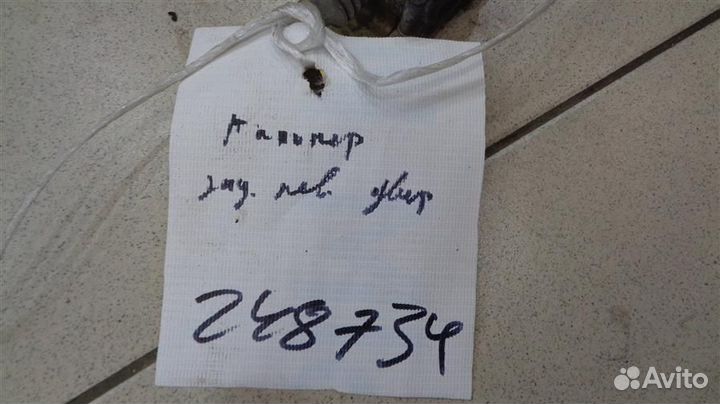 Калипер
зад. лев.
248734
Avito